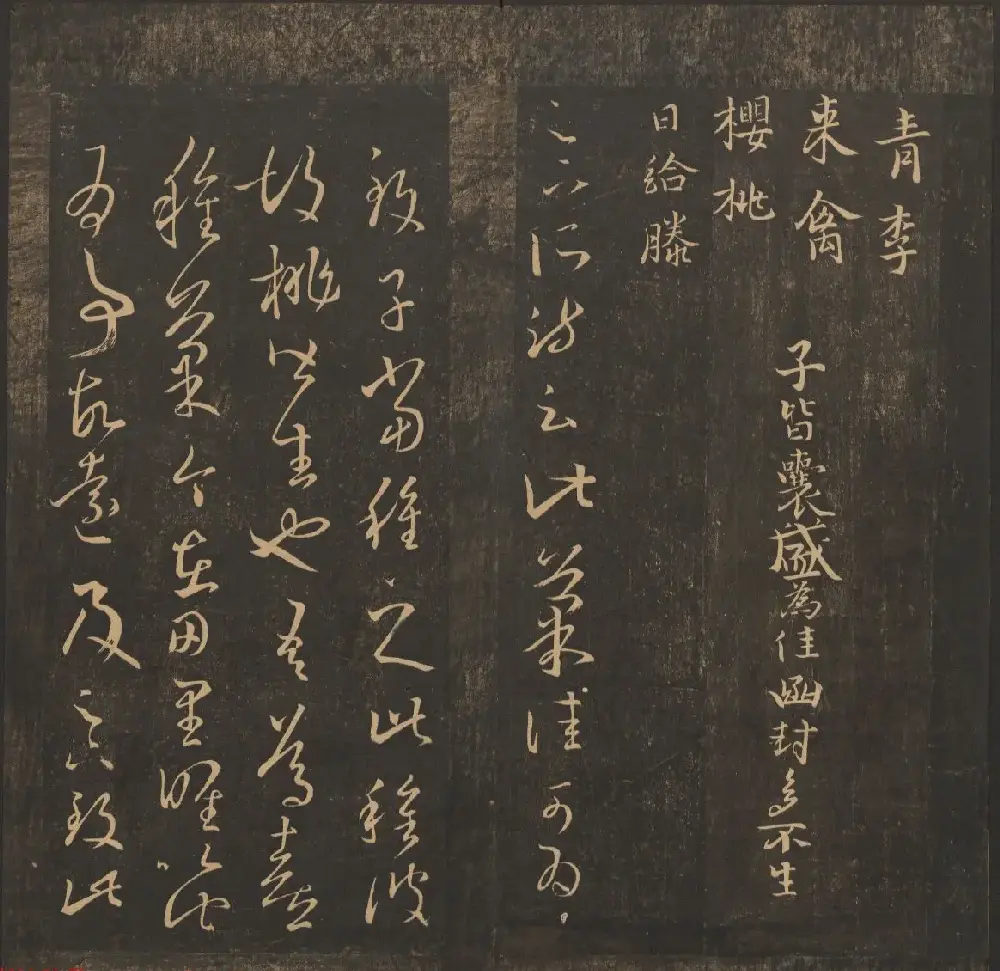 青李
来禽
櫻桃
日給滕
子皆囊盛為佳函封多不生
足下所疏云此菓佳可為
致子當種之此種彼
胡桃皆生也吾篤喜
種菓今在田里唯以此
為事故遠及足下致此